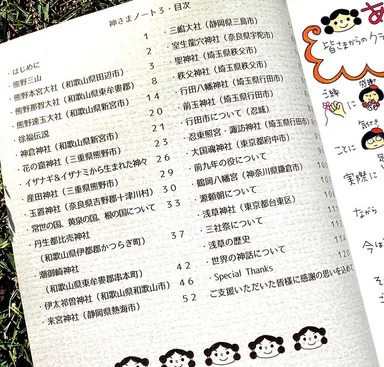 神さまノート3・目次
・はじめに 1
・熊野三山 2
・熊野本宮大社(和歌山県田辺市) 3
・熊野那智大社(和歌山県東牟婁郡) 8
・熊野速玉大社(和歌山県新宮市) 14
・徐福伝説 20
・神倉神社(和歌山県新宮市) 21
・花の窟神社(三重県熊野市) 23
・イザナギ&イザナミから生まれた神々 26
・産田神社(三重県熊野市) 29
・玉置神社(奈良県吉野郡十津川村) 30
・常世の国、黄泉の国、根の国について 33
・丹生都比売神社
(和歌山県伊都郡かつらぎ町) 37
・潮御崎神社
(和歌山県東牟婁郡串本町) 42
・伊太祁曽神社(和歌山県和歌山市) 46
・来宮神社(静岡県熱海市) 52
・三嶋大社(静岡県三島市)
・室生龍穴神社(奈良県宇陀市)
・聖神社(埼玉県秩父市)
・秩父神社(埼玉県秩父市)
・行田八幡神社(埼玉県行田市)
・前玉神社(埼玉県行田市)
・行田市について(忍城)
・忍東照宮・諏訪神社(埼玉県行田市)
・大国魂神社(東京都府中市)
・前九年の役について
・鶴岡八幡宮(神奈川県鎌倉市)
・源頼朝について
・浅草神社(東京都台東区)
・三社祭について
・浅草の歴史
・世界の神話について
・Special Thanks
ご支援いただいた皆様に感謝の思いを込めて
皆さまからのクラ
感謝
ご縁
気付き
ことに
実際に
ながら
今は